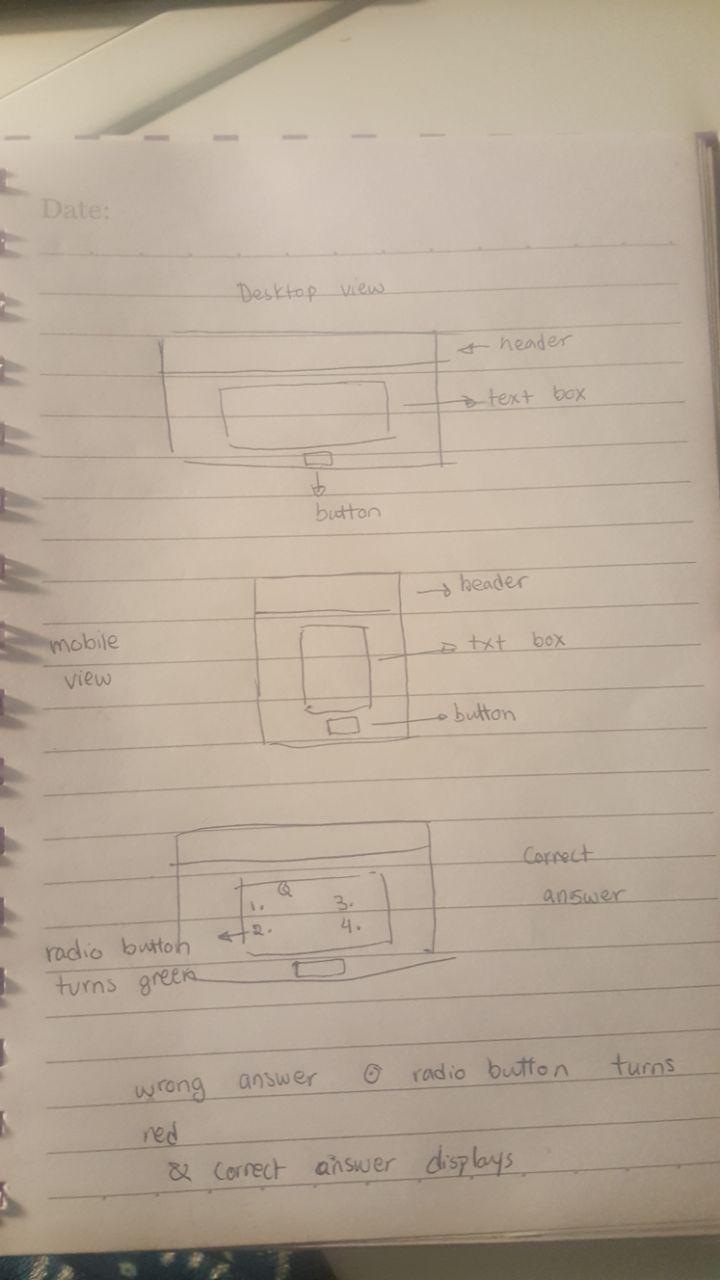 Date:
Desktop view
header
text box
button
header
mobile
view
txt box
button
Correct
answer
Q
1. 3.
2. 4.
radio button
turns green
wrong answer radio button turns
red
& correct answer displays